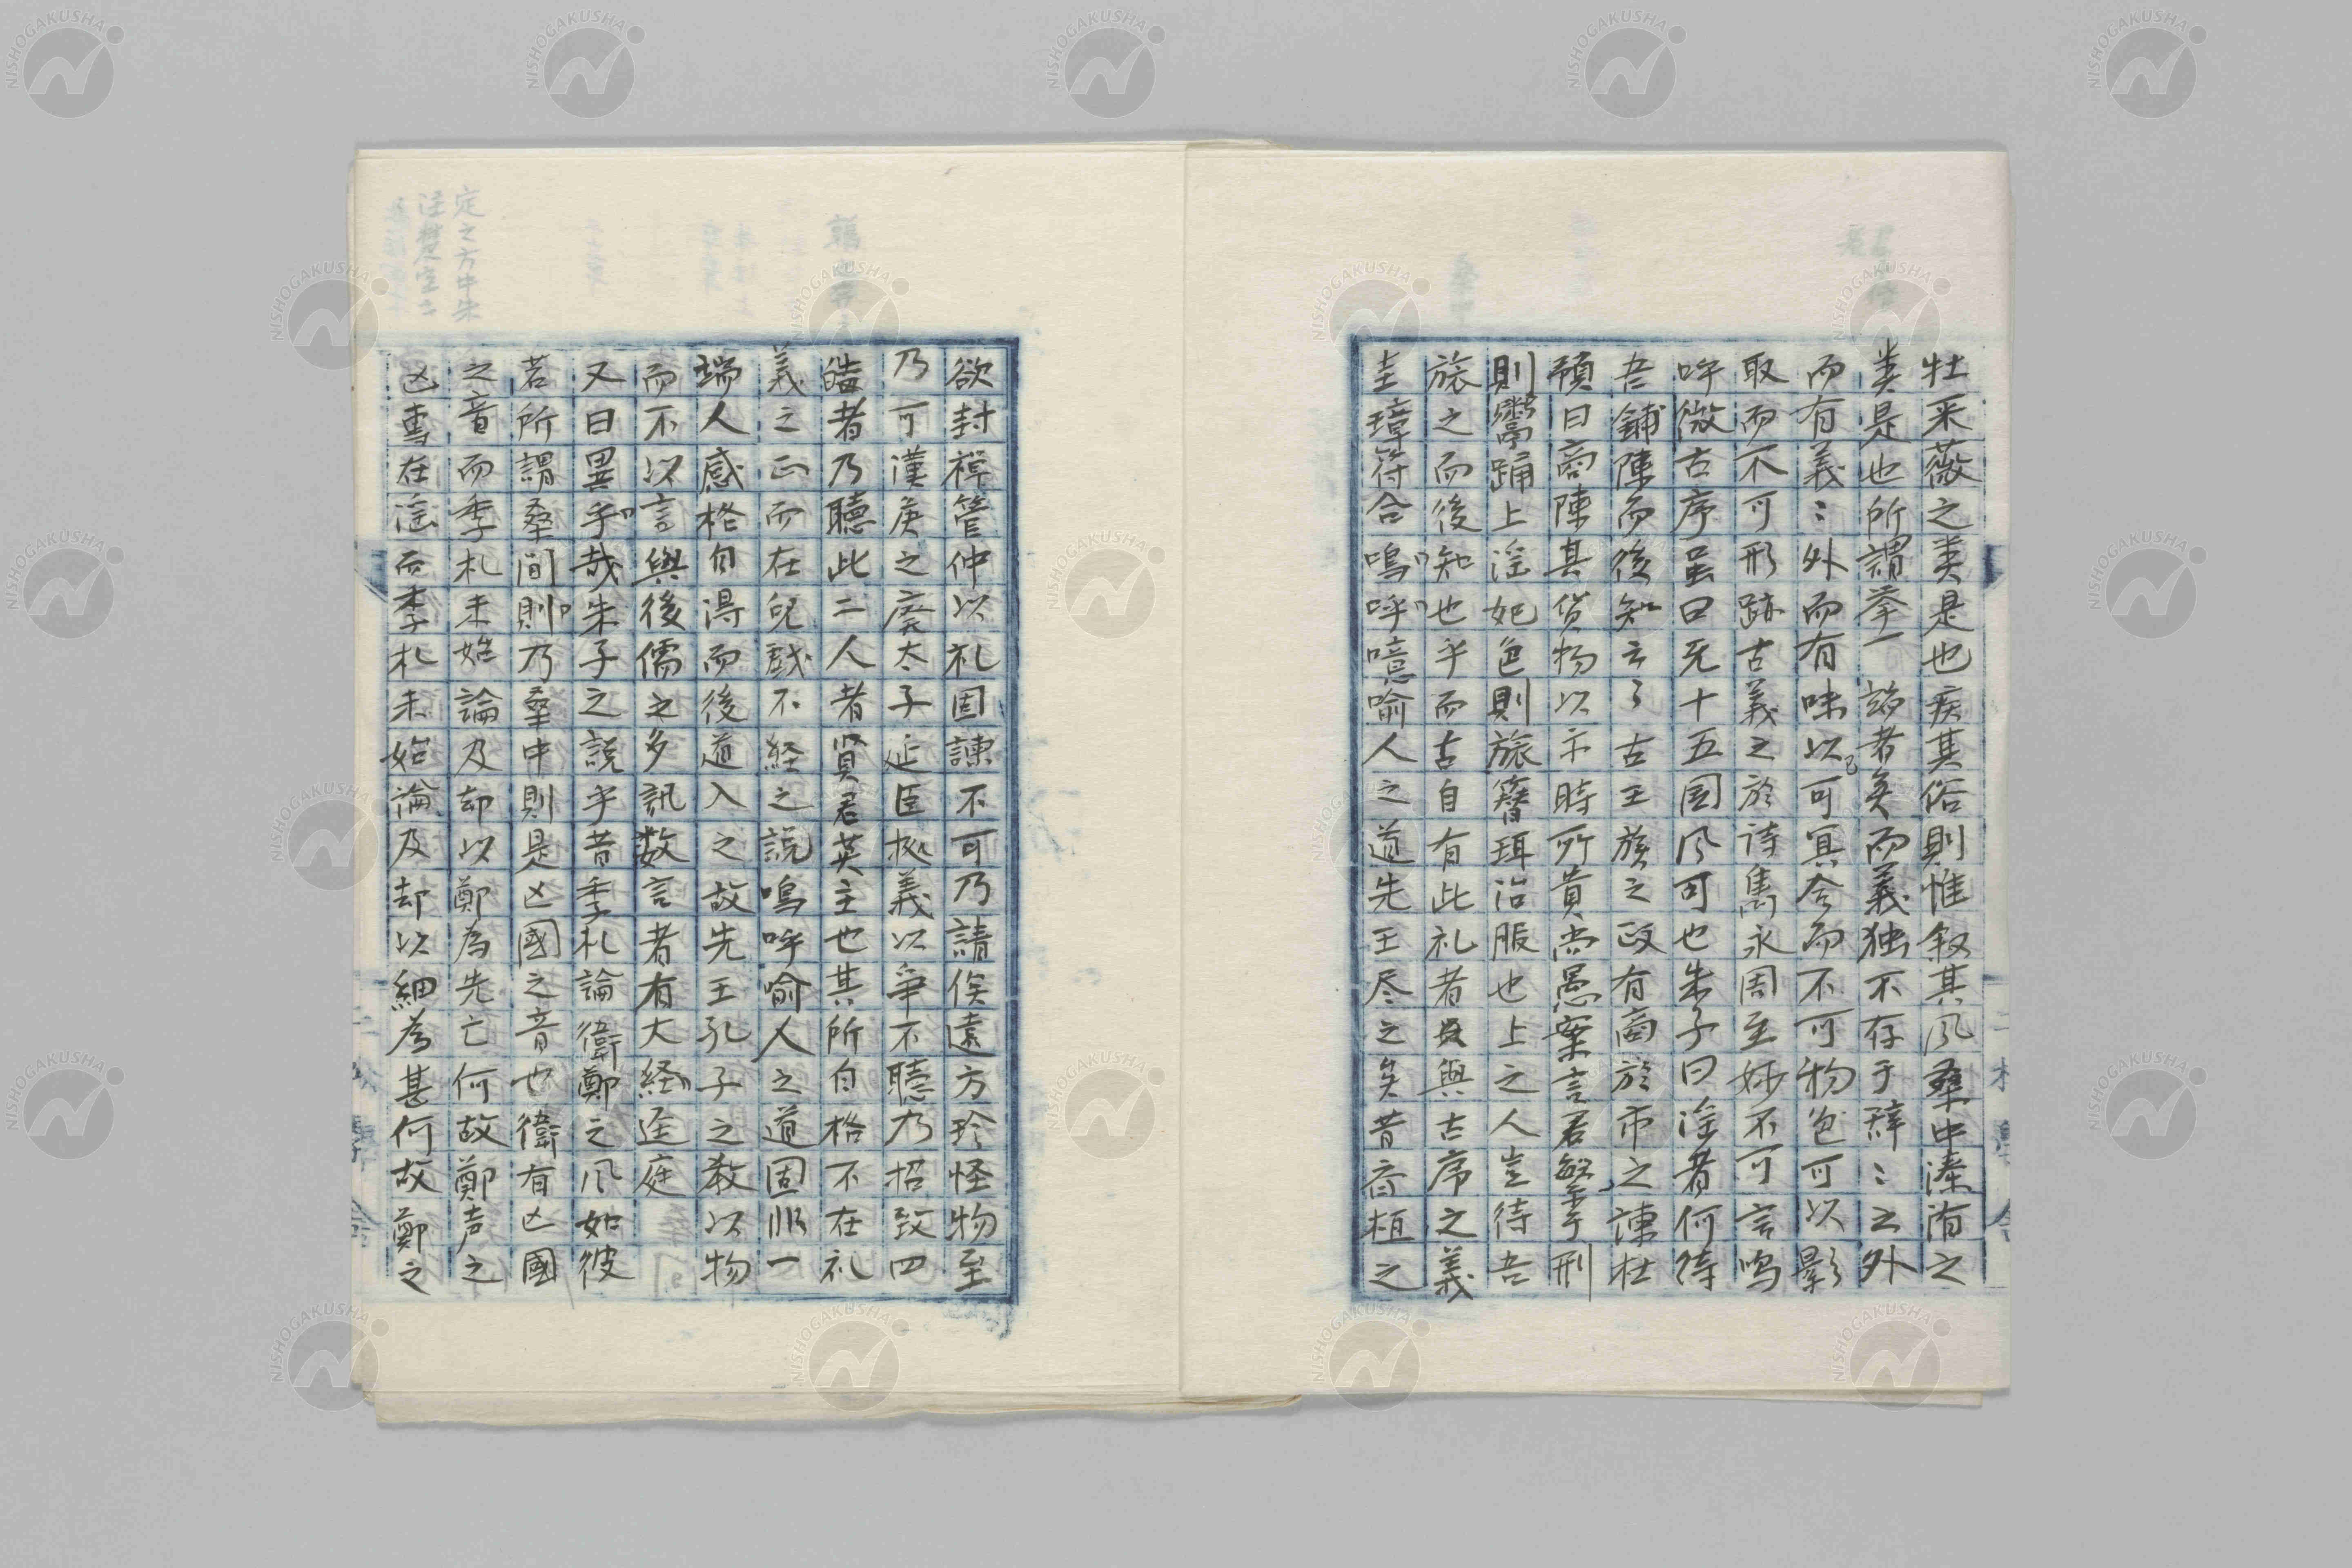 牡采薇之类是也疾其俗則惟叙其风桑中溱洧之
类是也所謂举一 諸者矣而義独不存于辞〻之外
而有義〻外而有味以可冥会而不可物色可以影
取而不可形跡古義之於詩雋永周至妙不可言鳴
呼微古序虽曰无十五国风可也朱子曰淫者何待
吾鋪陳而後知云了古王族之政有商於市之諫杜
預曰商陳其货物以示時所貴尚愚案言君繁于刑
則鬻踊上淫妃色則旅簪珥冶服也上之人豈待吾
旅之而後知也乎而古自有此礼者與古序之義
圭璋符合鳴呼噫喻人之道先王尽之矣昔斉桓之
欲封禅管仲以礼固諫不可乃請俟遠方珍怪物至
乃可漢庚之廃太子延臣拠義以爭不聴乃招致四
皓者乃聴此二人者賢君英主也其所自格不在礼
義之正而在兒戯不経之説鳴呼喻人之道固非一
端人感格自得而後道入之故先王孔子之教以物
而不以言與後儒之多訊数言者有大経逕庭
又曰異乎哉朱子之説乎昔季札論衛鄭之风如彼
若所謂桑间則乃桑中則是亡國之音也衛有亡國
之音而季札未始論及却以鄭為先亡何故鄭声之
亡專在淫而季札未始論及却以細為甚何故鄭之
定之方中朱
注楚宮之
NISHOGAKUSHA